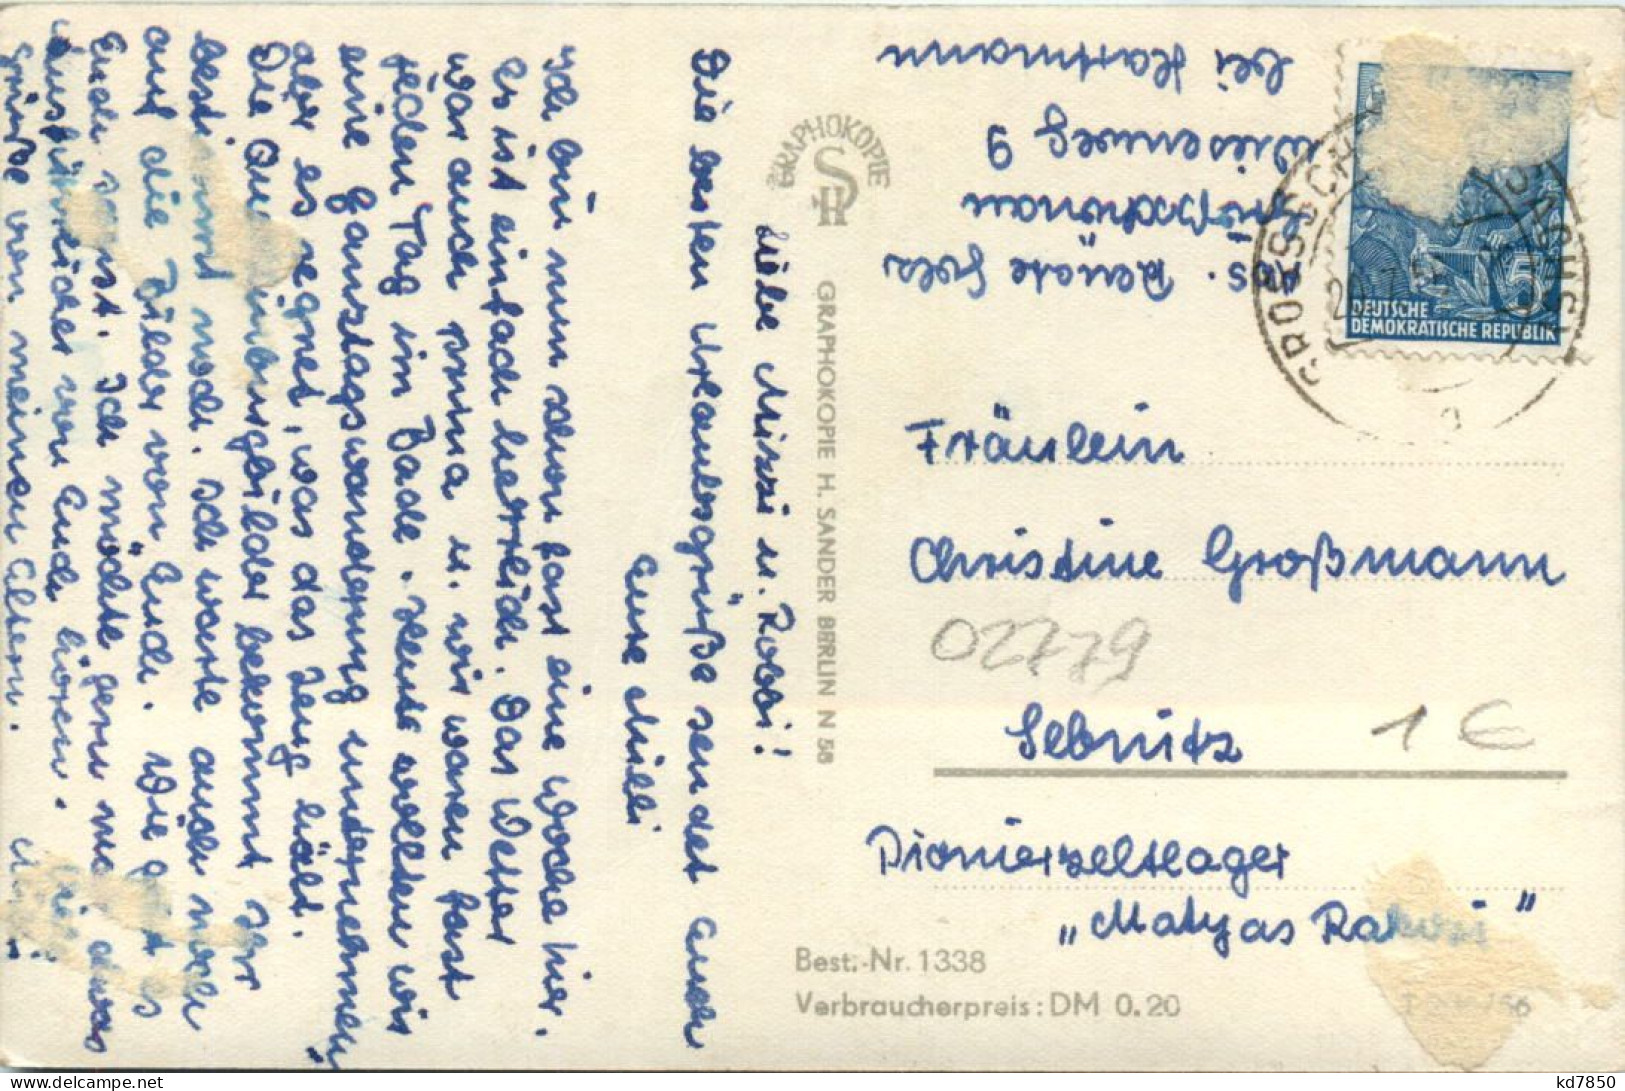 Liebe Missi u. Robbi!
Die besten Urlaubsgrüße sendet Euch
Eure Mulli
Ich bin nun schon fast eine Woche hier.
Es ist einfach herrlich. Das Wetter
war auch prima u. wir waren fast
jeden Tag im Bade. Heute wollten wir
eine Ganztagswanderung unternehmen
aber es regnet, was das Zeug hält.
Die bekommt Ihr
bestimmt noch. Ich warte auch noch
auf die Bilder von Euch. Wie geht es
Euch sonst. Ich möchte gern mal etwas
ausführlicher von Euch hören. Viele
Grüße von meinen Eltern.
GRAPHOKOPIE
GRAPHOKOPIE H. SANDER BERLIN N 58
Abs. Renate
Großschönau
Wiesenweg 9
bei Hartmann
DEUTSCHE
DEMOKRATISCHE REPUBLIK
GROSSSCH
Fräulein
Christine Großmann
02779
Sebnitz 1 €
Pionierzeltlager
„Matyas Rakosi"
Best.-Nr. 1338
Verbraucherpreis: DM 0.20
kd7850